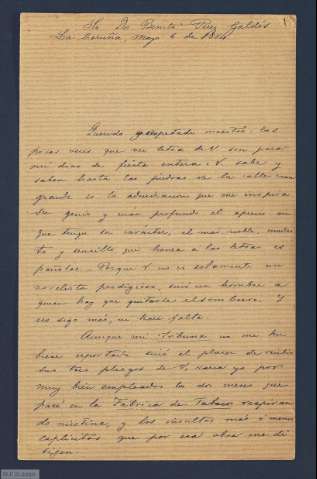 Sr. Dn. Benito Pérez Galdós
La Coruña, Mayo 6 de 1884
Querido y respetado maestro: las
pocas veces que veo letra de V. son para
mi días de fiesta entera: V. sabe y
saben hasta las piedras de la calle cuan
grande es la admiracion que me inspira
su genio y cuan profundo el aprecio en
que tengo su carácter, el mas noble, modes
to y sencillo que honra a las letras es
pañolas. Porque V. no es solamente un
novelista prodigioso, sinó un hombre a
quien hay que quitarle el sombrero. Y
no digo más, ni hace falta
Aunque mi Tribuna no me hu
biese reportado sinó el placer de recibir
sus tres pliegos de V. daria yo por
muy bien empleados los dos meses que
pasé en la Fábrica de Tabacos respiran
do nicotina, y los insultos más ó menos
explícitos que por esa obra me di
rigen.